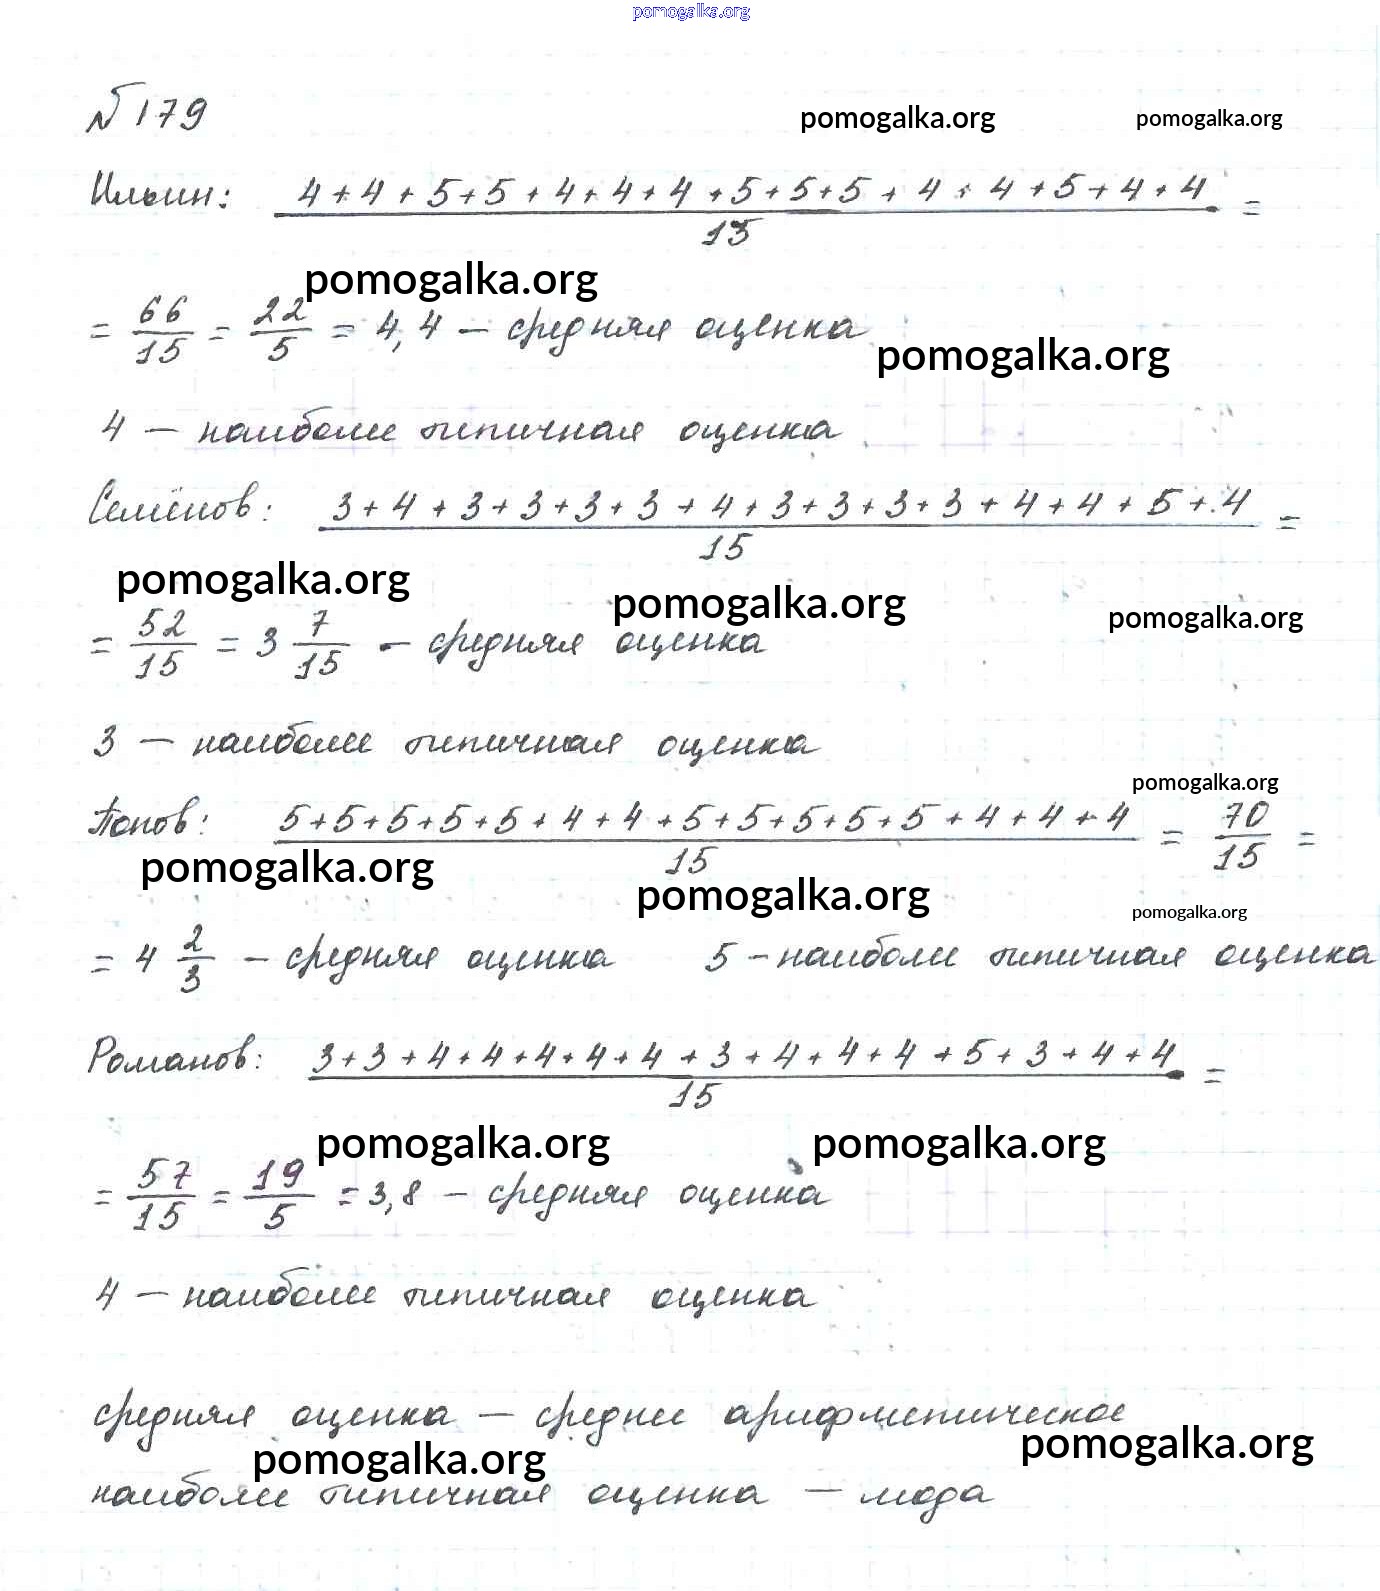 pomogalka.org
№ 179
pomogalka.org pomogalka.org
Ильин: 4+4+5+5+4+4+4+5+5+5+4+4+5+4+4 / 15 =
pomogalka.org
= 66/15 = 22/5 = 4,4 — средняя оценка
pomogalka.org
4 — наиболее типичная оценка
Семёнов: 3+4+3+3+3+3+4+3+3+3+3+4+4+5+4 / 15 =
pomogalka.org pomogalka.org pomogalka.org
= 52/15 = 3 7/15 — средняя оценка
3 — наиболее типичная оценка
pomogalka.org
Попов: 5+5+5+5+5+4+4+5+5+5+5+5+4+4+4 / 15 = 70/15 =
pomogalka.org pomogalka.org pomogalka.org
= 4 2/3 — средняя оценка 5 — наиболее типичная оценка
Романов: 3+3+4+4+4+4+4+3+4+4+4+5+3+4+4 / 15 =
pomogalka.org pomogalka.org
= 57/15 = 19/5 = 3,8 — средняя оценка
4 — наиболее типичная оценка
средняя оценка — среднее арифметическое
pomogalka.org pomogalka.org
наиболее типичная оценка — мода